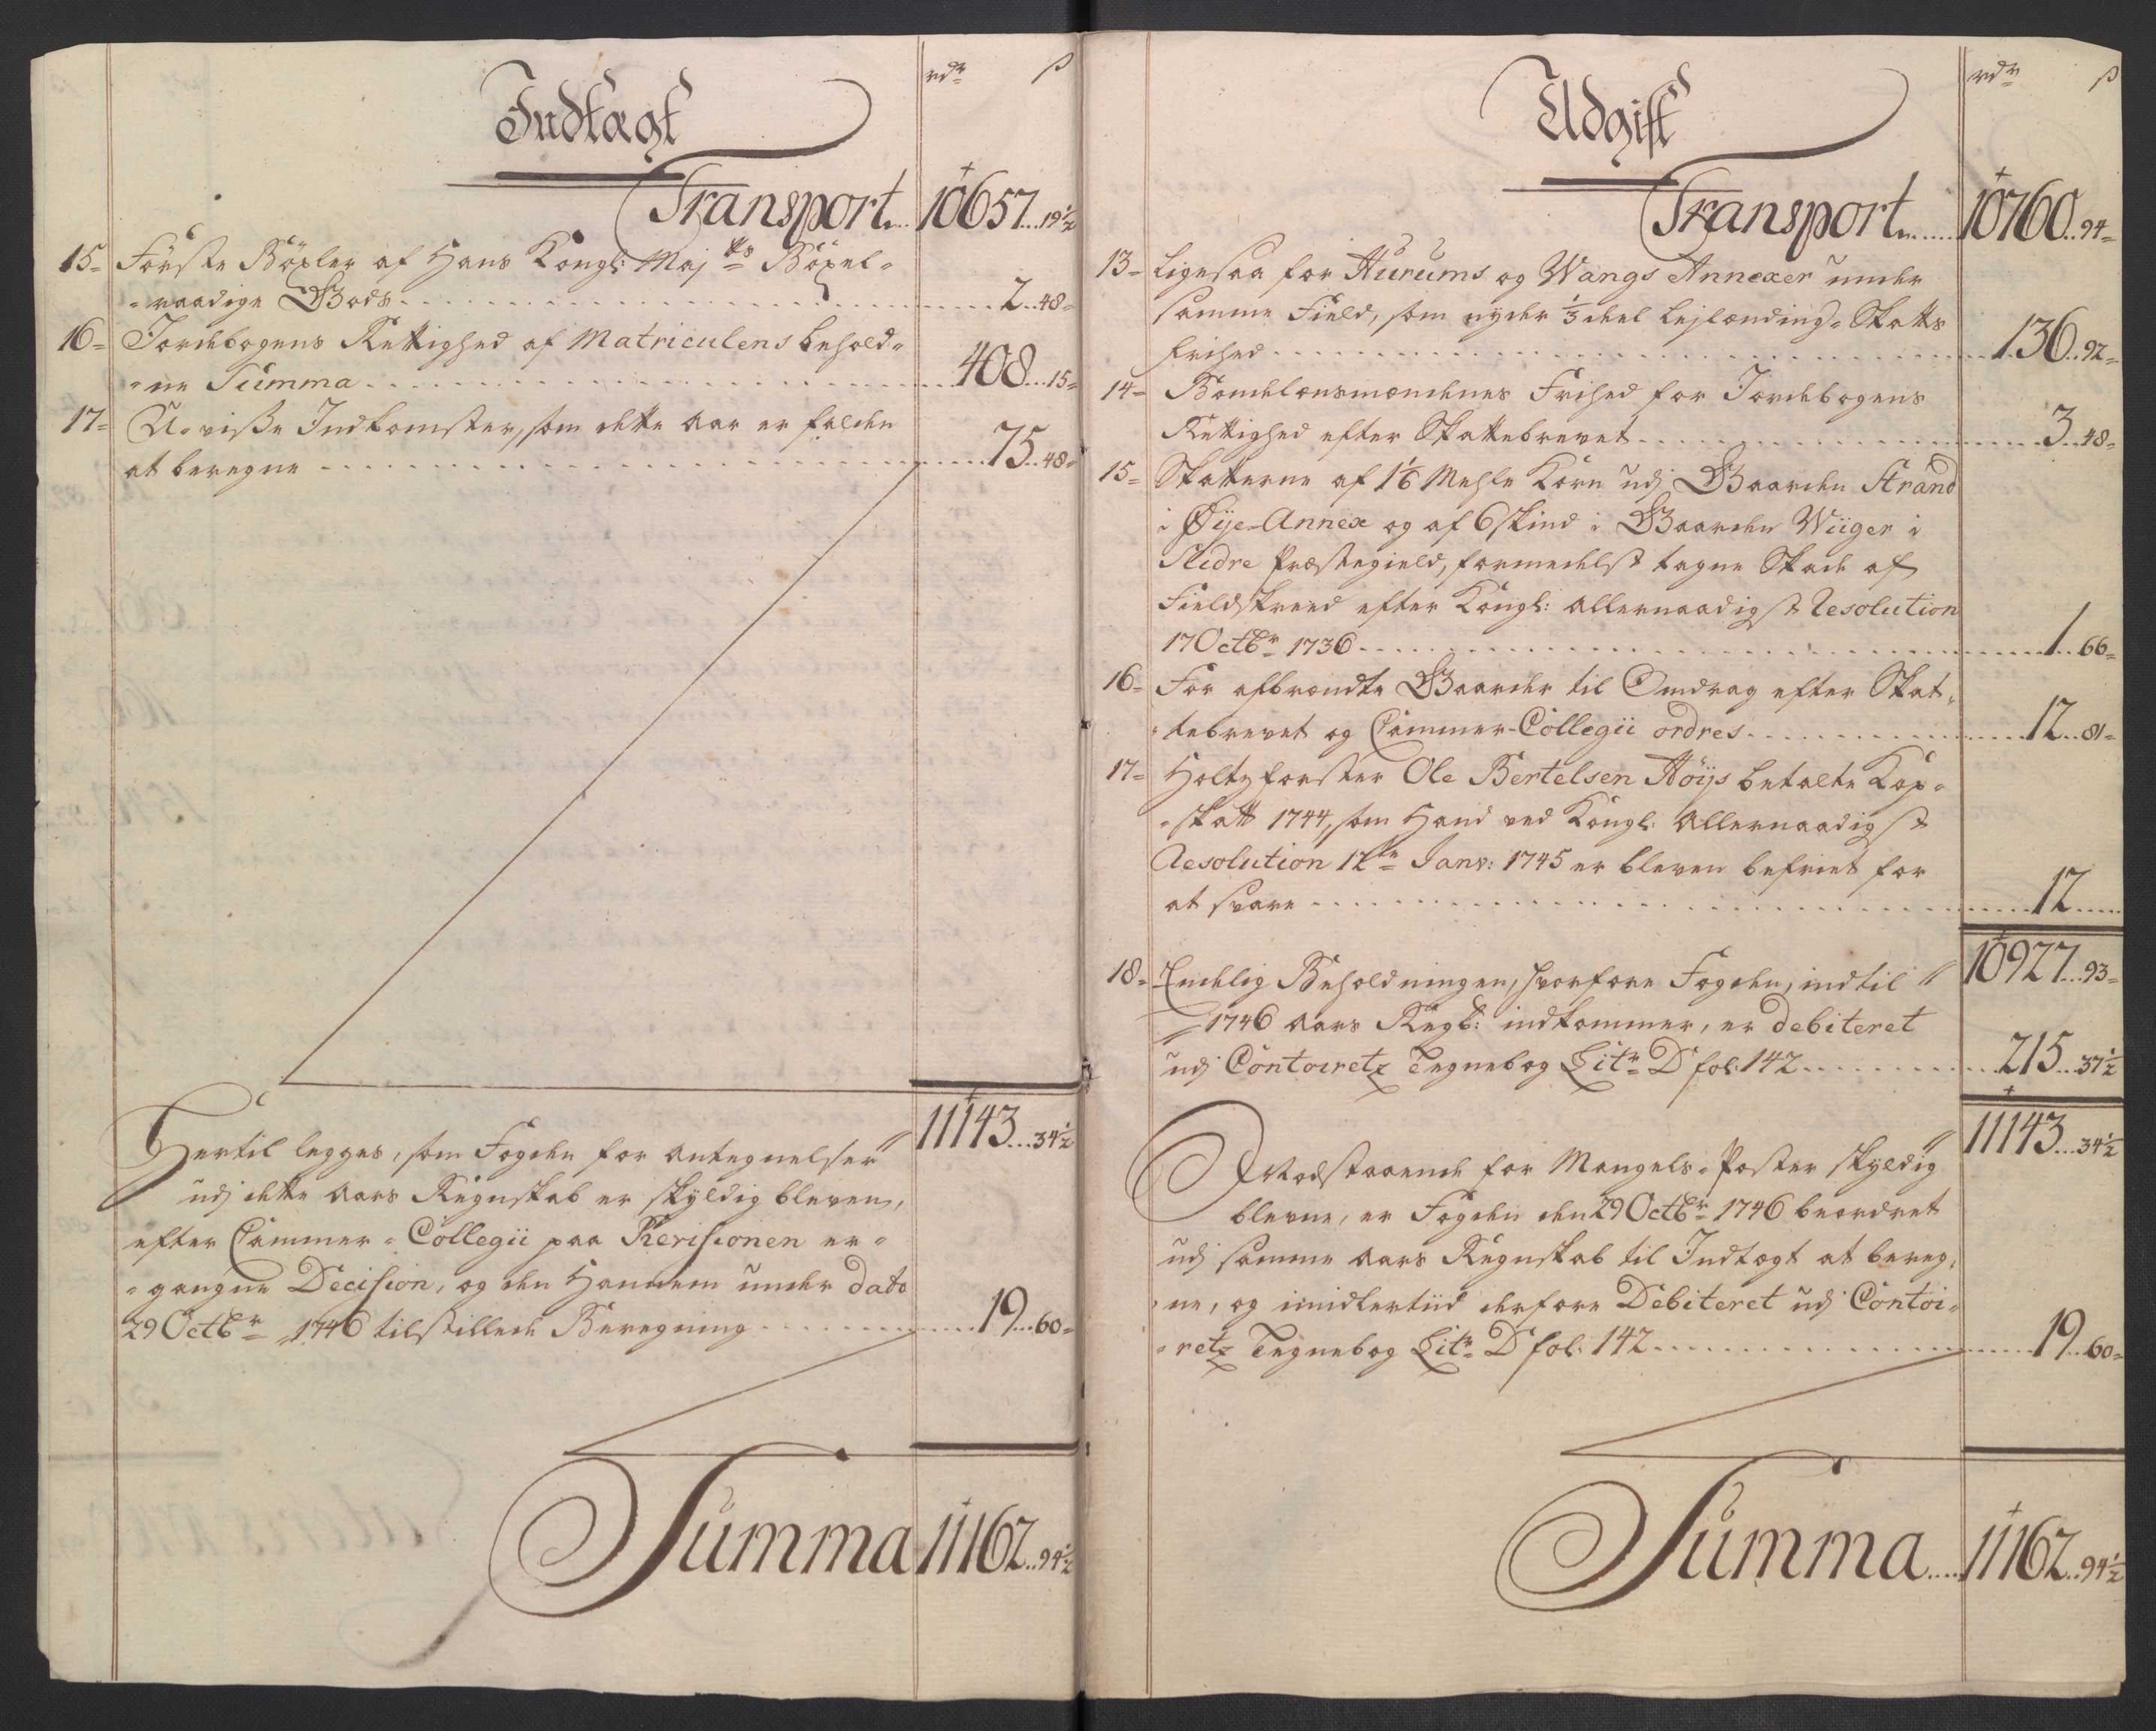 Indtægt
rdr ß
Transport... 10657...19½
15= Förste Böxler af Hans Kongl: Majts Böxel=
=raadige Gods......2..48=
16= Jordebogens Rettighed af Matriculens behold=
=ne Summa......408...15=
17= U-visse Indkomster, som dette Aar er falden
at beregne......75..48=
11143...34½
Hertil legges, som Fogden for Antegnelser
udj dette Aars Regnskab er skyldig bleven,
efter Cammer=Collegii paa Revisionen er=
=gangne Decision, og den Hannem under dato
29 Octbr 1746 tilstillede Beregning......19...60=
Summa 11162..94½
Udgift
rdr ß
Transport...... 10760..94=
13= Ligesaa for Hurums og Wangs Annexer under
samme Field, som nyder ⅓ deel Lejlænding=Skatts
frihed......136..92=
14= Bondelensmændenes Frihed for Jordebogens
Rettighed efter Skattebrevet......3..48=
15= Skatterne af 1⅙ Mehle Korn udj Gaarden Strand
i Øye-Annex og af 6 skind i Gaarden Wiiger i
Slidre Præstegield, formedelst tagne Skade af
Fieldskreed efter Kongl: allernaadigst Resolution
17 Octbr 1736......1..66=
16= For afbrændte Gaarder til Omdrag efter Skat=
=tebrevet og Cammer-Collegii ordres......12..81=
17= Holtzforster Ole Bertelsen Höys betalte Kop=
=skatt 1744, som Hand ved Kongl: Allernaadigst
Resolution 12te Janv: 1745 er bleven befriet for
at svare......12......
10927...93=
18= Endelig Beholdningen, hvorfore Fogden, indtil
1746 Aars Regsk: indkommer, er debiteret
udj Contoiretz Tegnebog Litr D fol: 142......215...37½
11143...34½
Modstaaende for Mangels=Poster skyldig
blevne, er Fogden den 29 Octbr 1746 beordret
udj samme Aars Regnskab til Indtægt at bereg=
=ne, og imidlertiid derfore Debiteret udj Contoi=
=retz Tegnebog Litr D fol: 142......19..60=
Summa.....11162..94½